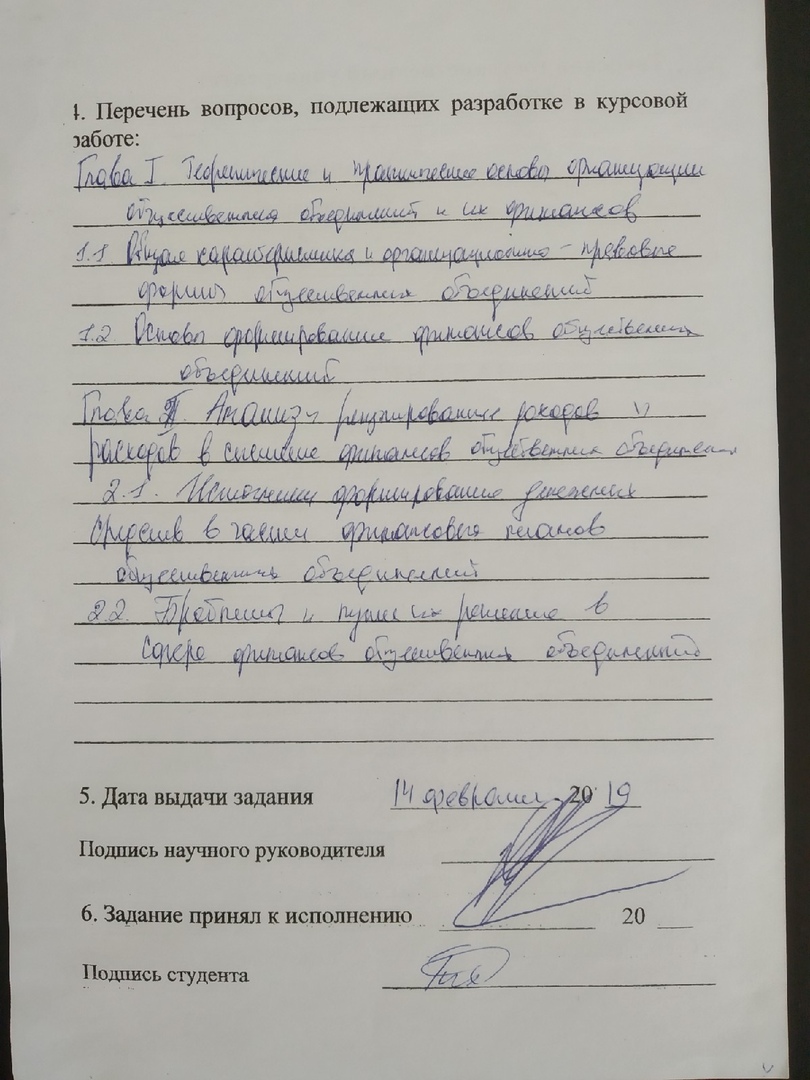 4. Перечень вопросов, подлежащих разработке в курсовой
работе:
Глава I. Теоретические и практические основы организации
общественных объединений и их финансов
1.1 Общая характеристика и организационно - правовые
формы общественных объединений
1.2 Основы формирования финансов общественных
объединений
Глава II. Анализ регулирования доходов и
расходов в системе финансов общественных объединений
2.1. Источники формирования денежных
средств в части финансовых планов
общественных объединений
2.2. Проблемы и пути их решения в
сфере финансов общественных объединений
5. Дата выдачи задания 14 февраля 20 19
Подпись научного руководителя
6. Задание принял к исполнению 20
Подпись студента